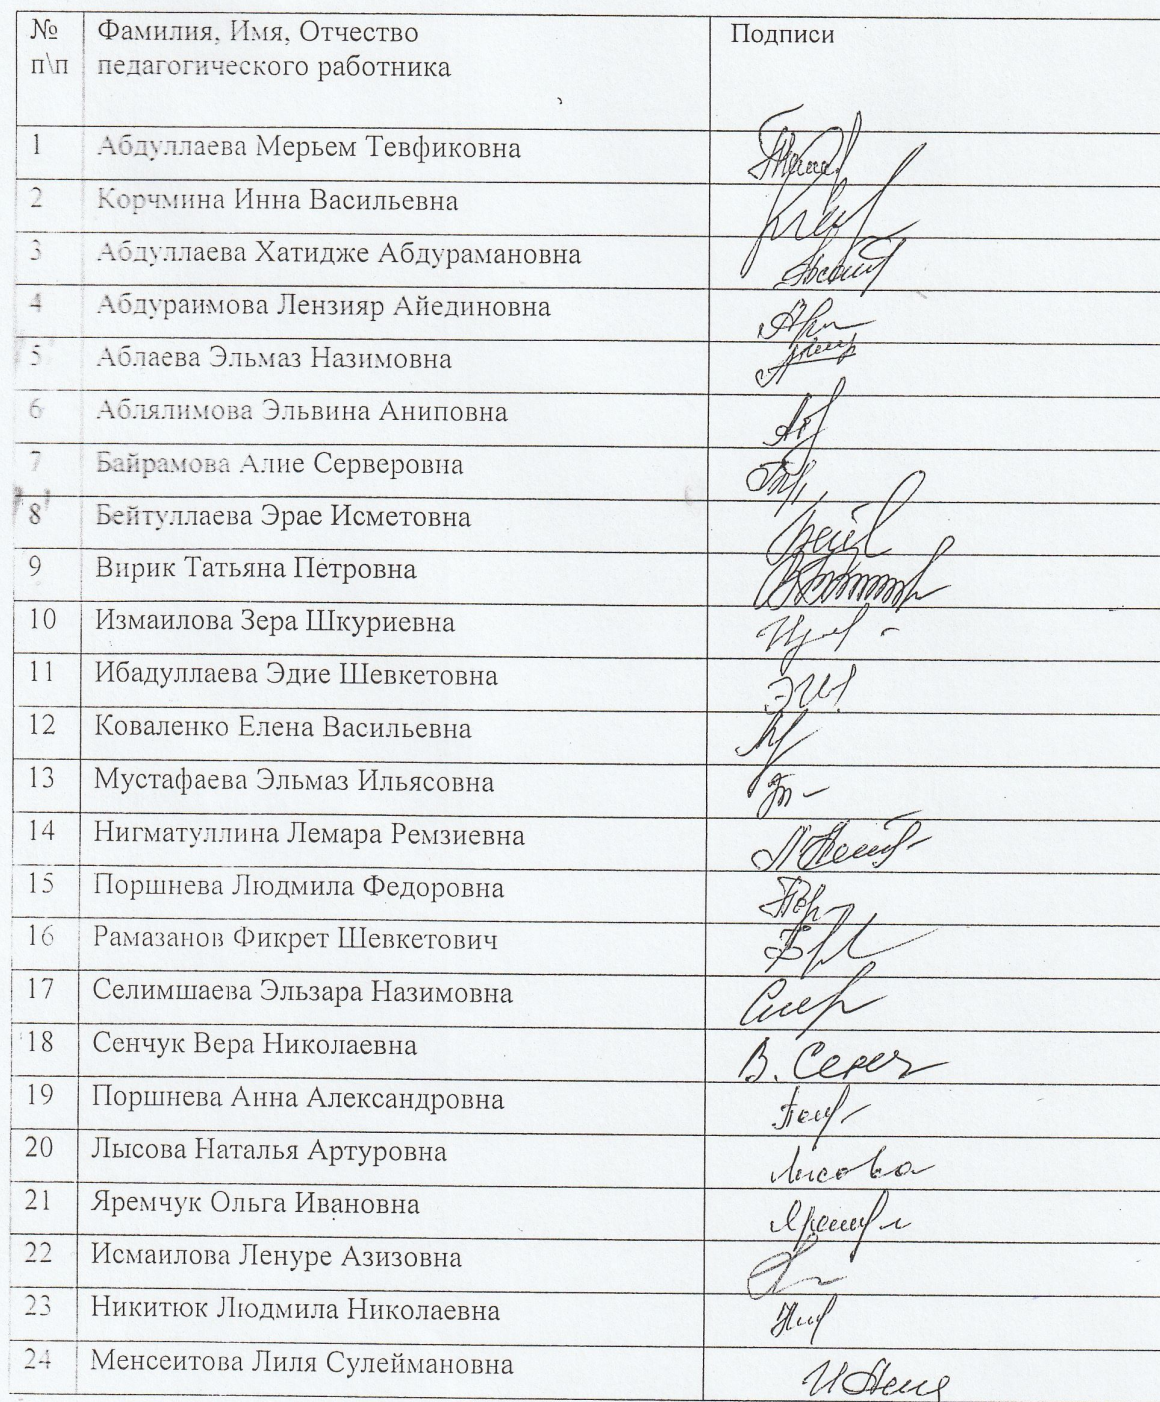 № Фамилия, Имя, Отчество Подписи
п\п педагогического работника
1 Абдуллаева Мерьем Тевфиковна
2 Корчмина Инна Васильевна
3 Абдуллаева Хатидже Абдурамановна
4 Абдураимова Лензияр Айединовна
5 Аблаева Эльмаз Назимовна
6 Аблялимова Эльвина Аниповна
7 Байрамова Алие Серверовна
8 Бейтуллаева Эрае Исметовна
9 Вирик Татьяна Петровна
10 Измаилова Зера Шкуриевна
11 Ибадуллаева Эдие Шевкетовна
12 Коваленко Елена Васильевна
13 Мустафаева Эльмаз Ильясовна
14 Нигматуллина Лемара Ремзиевна
15 Поршнева Людмила Федоровна
16 Рамазанов Фикрет Шевкетович
17 Селимшаева Эльзара Назимовна
18 Сенчук Вера Николаевна В.
19 Поршнева Анна Александровна
20 Лысова Наталья Артуровна
21 Яремчук Ольга Ивановна
22 Исмаилова Ленуре Азизовна
23 Никитюк Людмила Николаевна
24 Менсеитова Лиля Сулеймановна